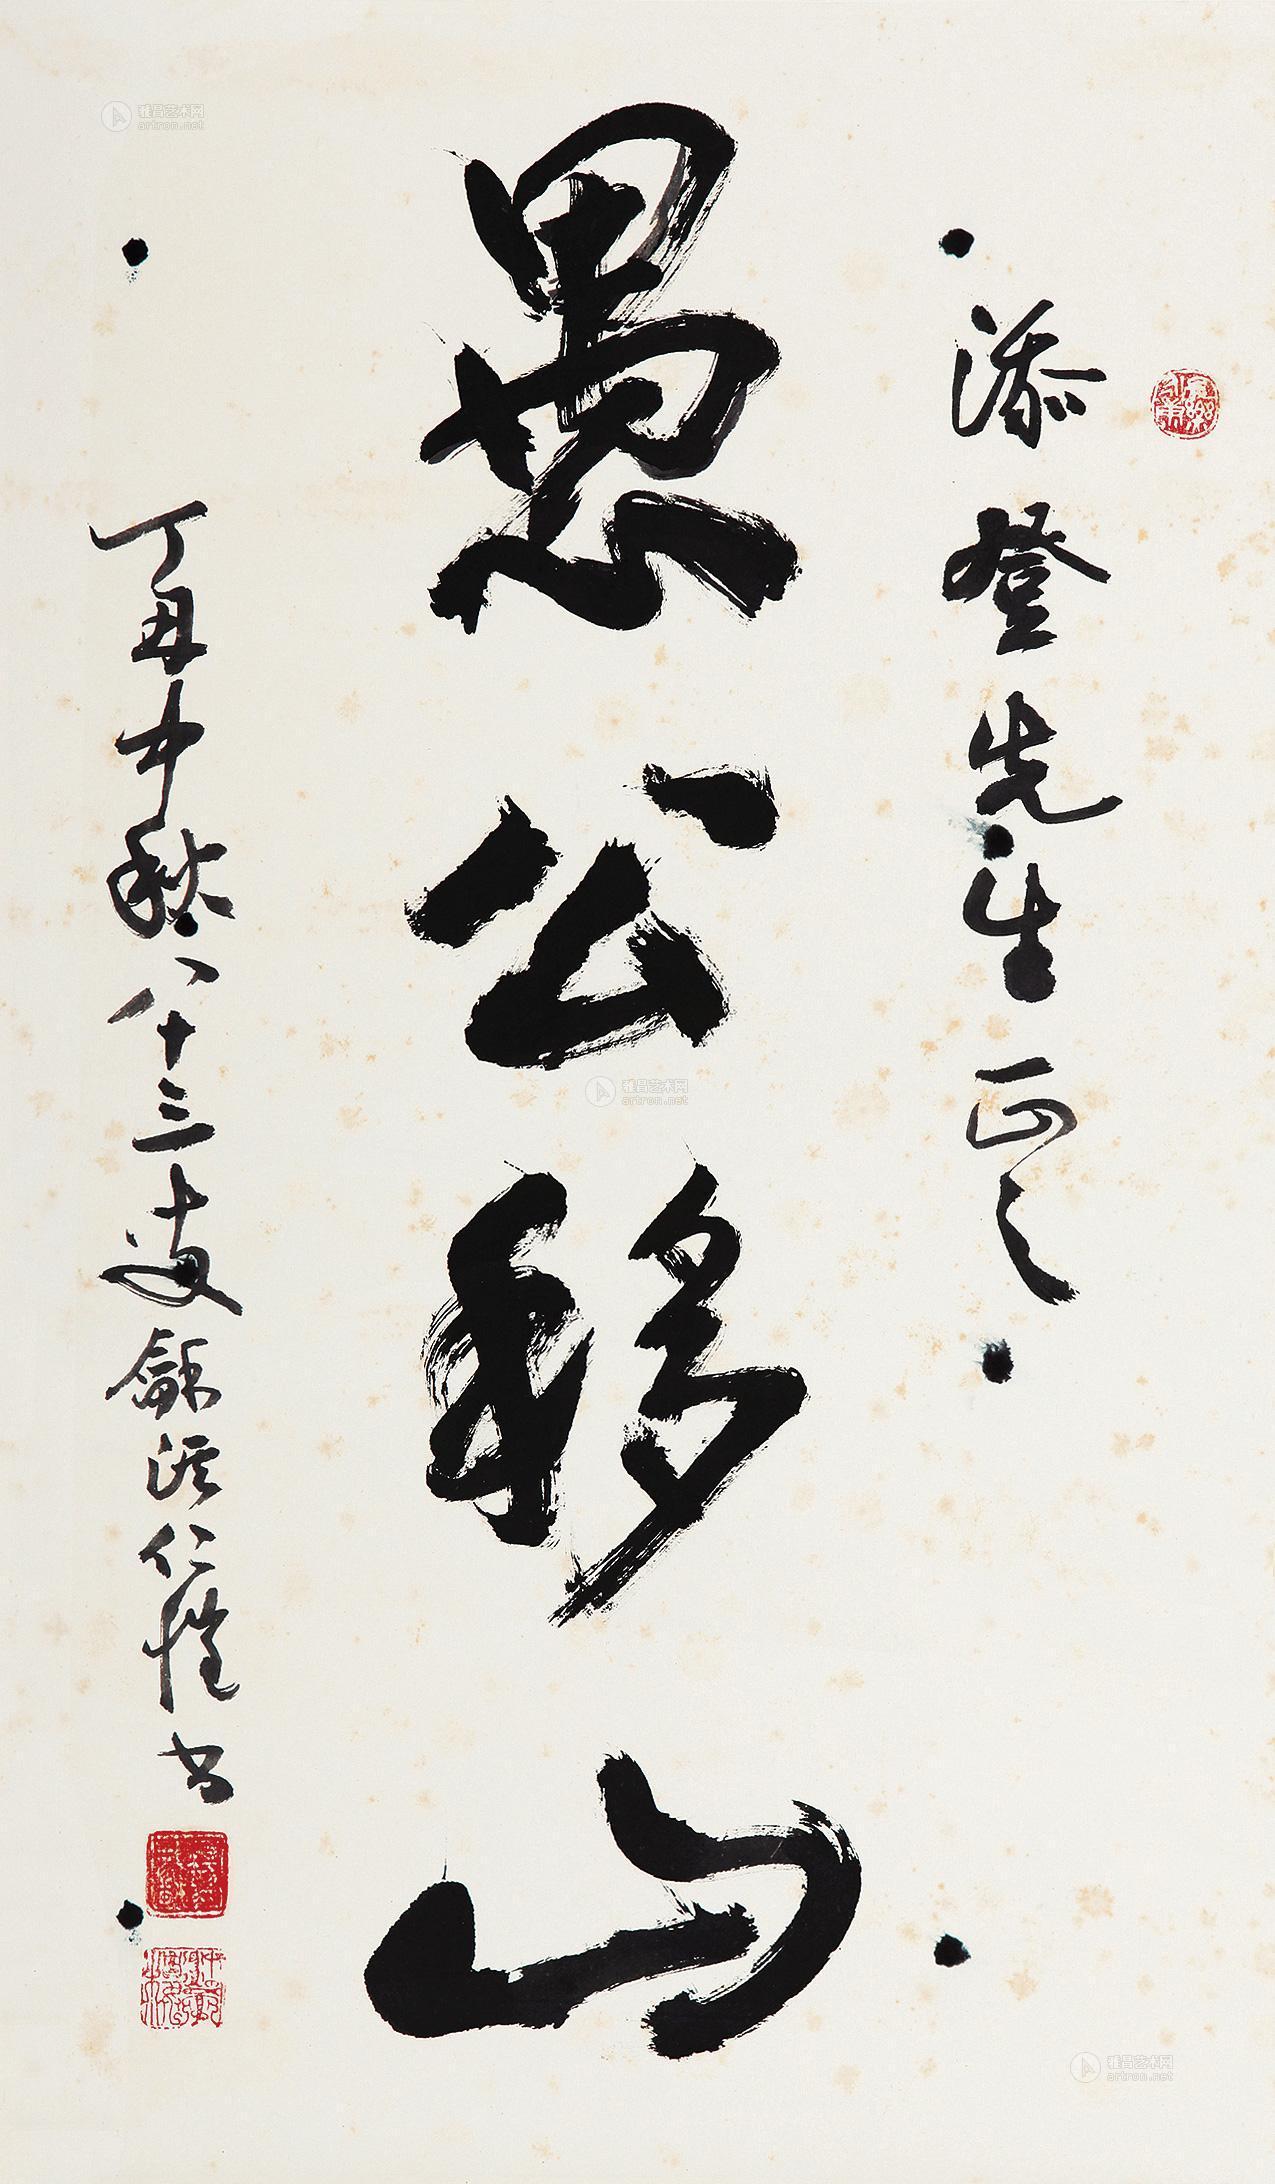 添登先生正之
愚公移山
丁丑中秋八十三叟龢溪仁愷书
雅昌艺术网
artron.net
雅昌艺术网
artron.net
雅昌艺术网
artron.net